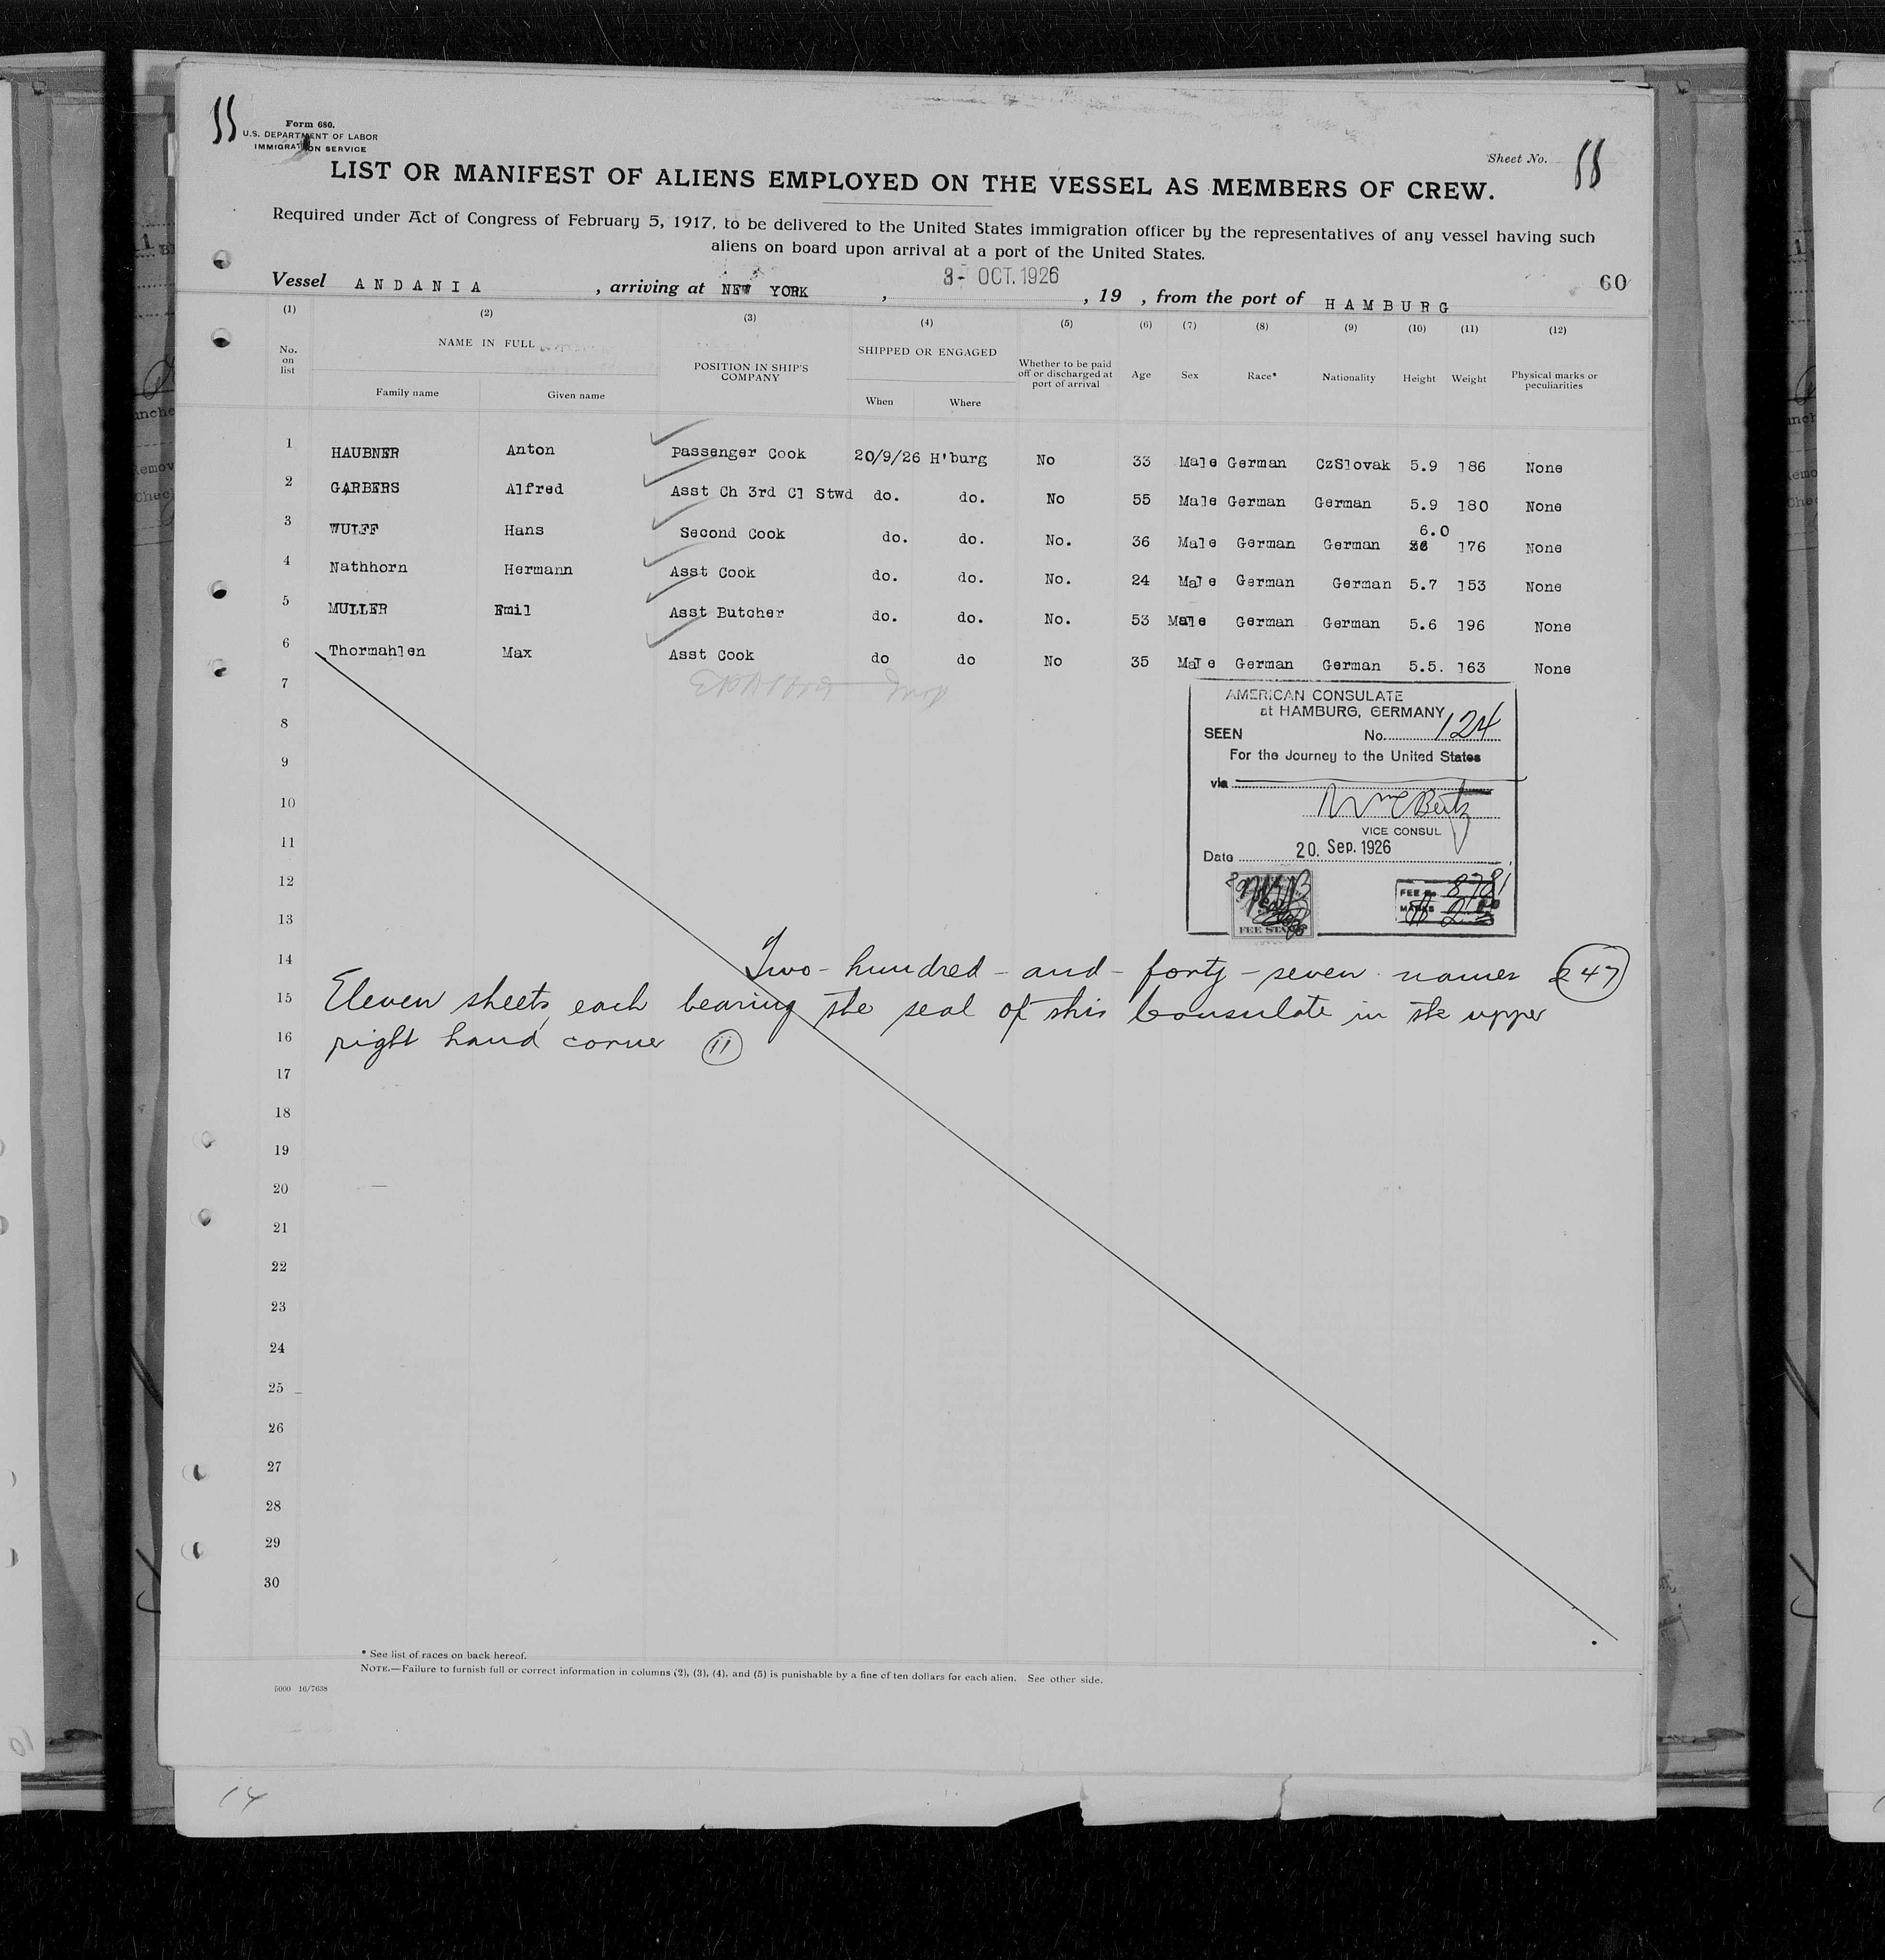 Form 680.
U.S. DEPARTMENT OF LABOR
IMMIGRATION SERVICE
Sheet No.
LIST OR MANIFEST OF ALIENS EMPLOYED ON THE VESSEL AS MEMBERS OF CREW.
Required under Act of Congress of February 5, 1917, to be delivered to the United States immigration officer by the representatives of any vessel having such
aliens on board upon arrival at a port of the United States.
Vessel ANDANIA, arriving at NEW YORK, 3- OCT. 1926, 19 , from the port of HAMBURG
60
(1) (2) (3) (4) (5) (6) (7) (8) (9) (10) (11) (12)
No. on list NAME IN FULL POSITION IN SHIP'S COMPANY SHIPPED OR ENGAGED Whether to be paid off or discharged at port of arrival Age Sex Race* Nationality Height Weight Physical marks or peculiarities
Family name Given name When Where
1 HAUBNER Anton passenger Cook 20/9/26 H'burg No 33 Male German CzSlovak 5.9 186 None
2 GARBERS Alfred Asst Ch 3rd Cl Stwd do. do. No 55 Male German German 5.9 180 None
3 WULFF Hans Second Cook do. do. No. 36 Male German German 6.0 176 None
4 Nathhorn Hermann Asst Cook do. do. No. 24 Male German German 5.7 153 None
5 MULLER Emil Asst Butcher do. do. No. 53 Male German German 5.6 196 None
6 Thormahlen Max Asst Cook do do No 35 Male German German 5.5. 163 None
7
8
9
10
11
12
13
14
15
16
17
18
19
20
21
22
23
24
25
26
27
28
29
30
AMERICAN CONSULATE
at HAMBURG, GERMANY
SEEN No. 124
For the Journey to the United States
via
VICE CONSUL
Date 20. Sep. 1926
FEE No. 8781
MARKS
FEE STAMP
Two-hundred-and-forty-seven names 247
Eleven sheets, each bearing the seal of this Consulate in the upper
right hand corner 11
* See list of races on back hereof.
NOTE.—Failure to furnish full or correct information in columns (2), (3), (4), and (5) is punishable by a fine of ten dollars for each alien. See other side.
5000 16/7638
14